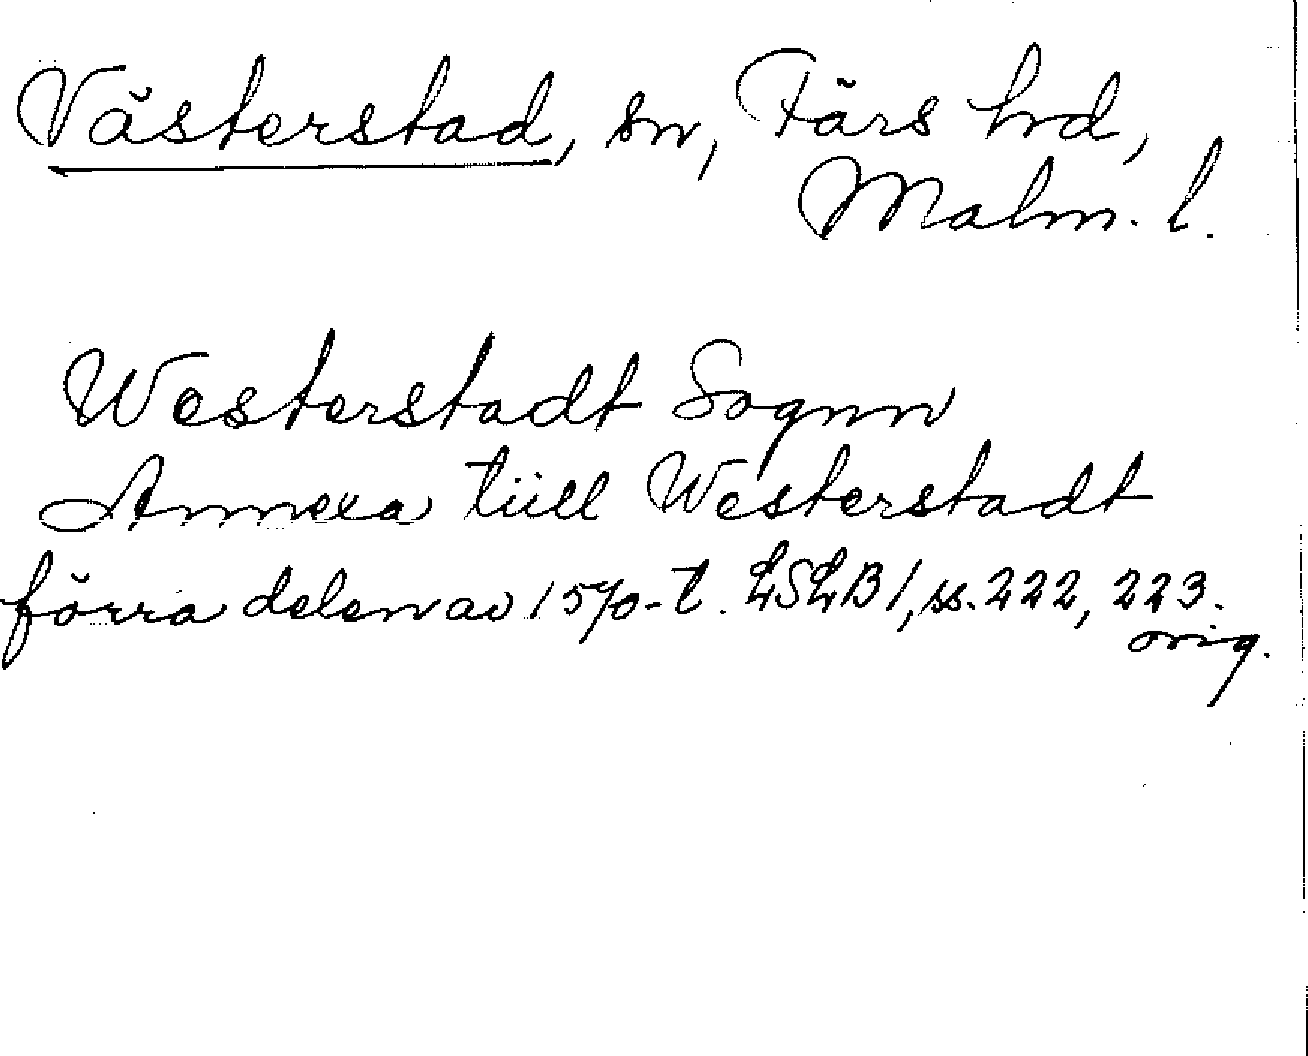 Västerstad, sn, Färs hd,
Malm. l.
Westerstadt Sognn
Annexa tüll Westerstadt
förra delen av 1570-t. LSLB 1, ss. 222, 223.
orig.